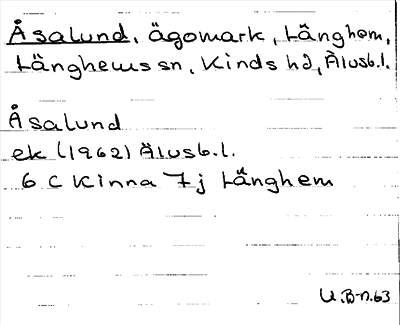 Åsalund, ägomark, Länghem,
Länghems sn, Kinds hd, Älvsb.l.
Åsalund
ek (1962) Älvsb.l.
6 C Kinna 7j Länghem
U.B-n.63